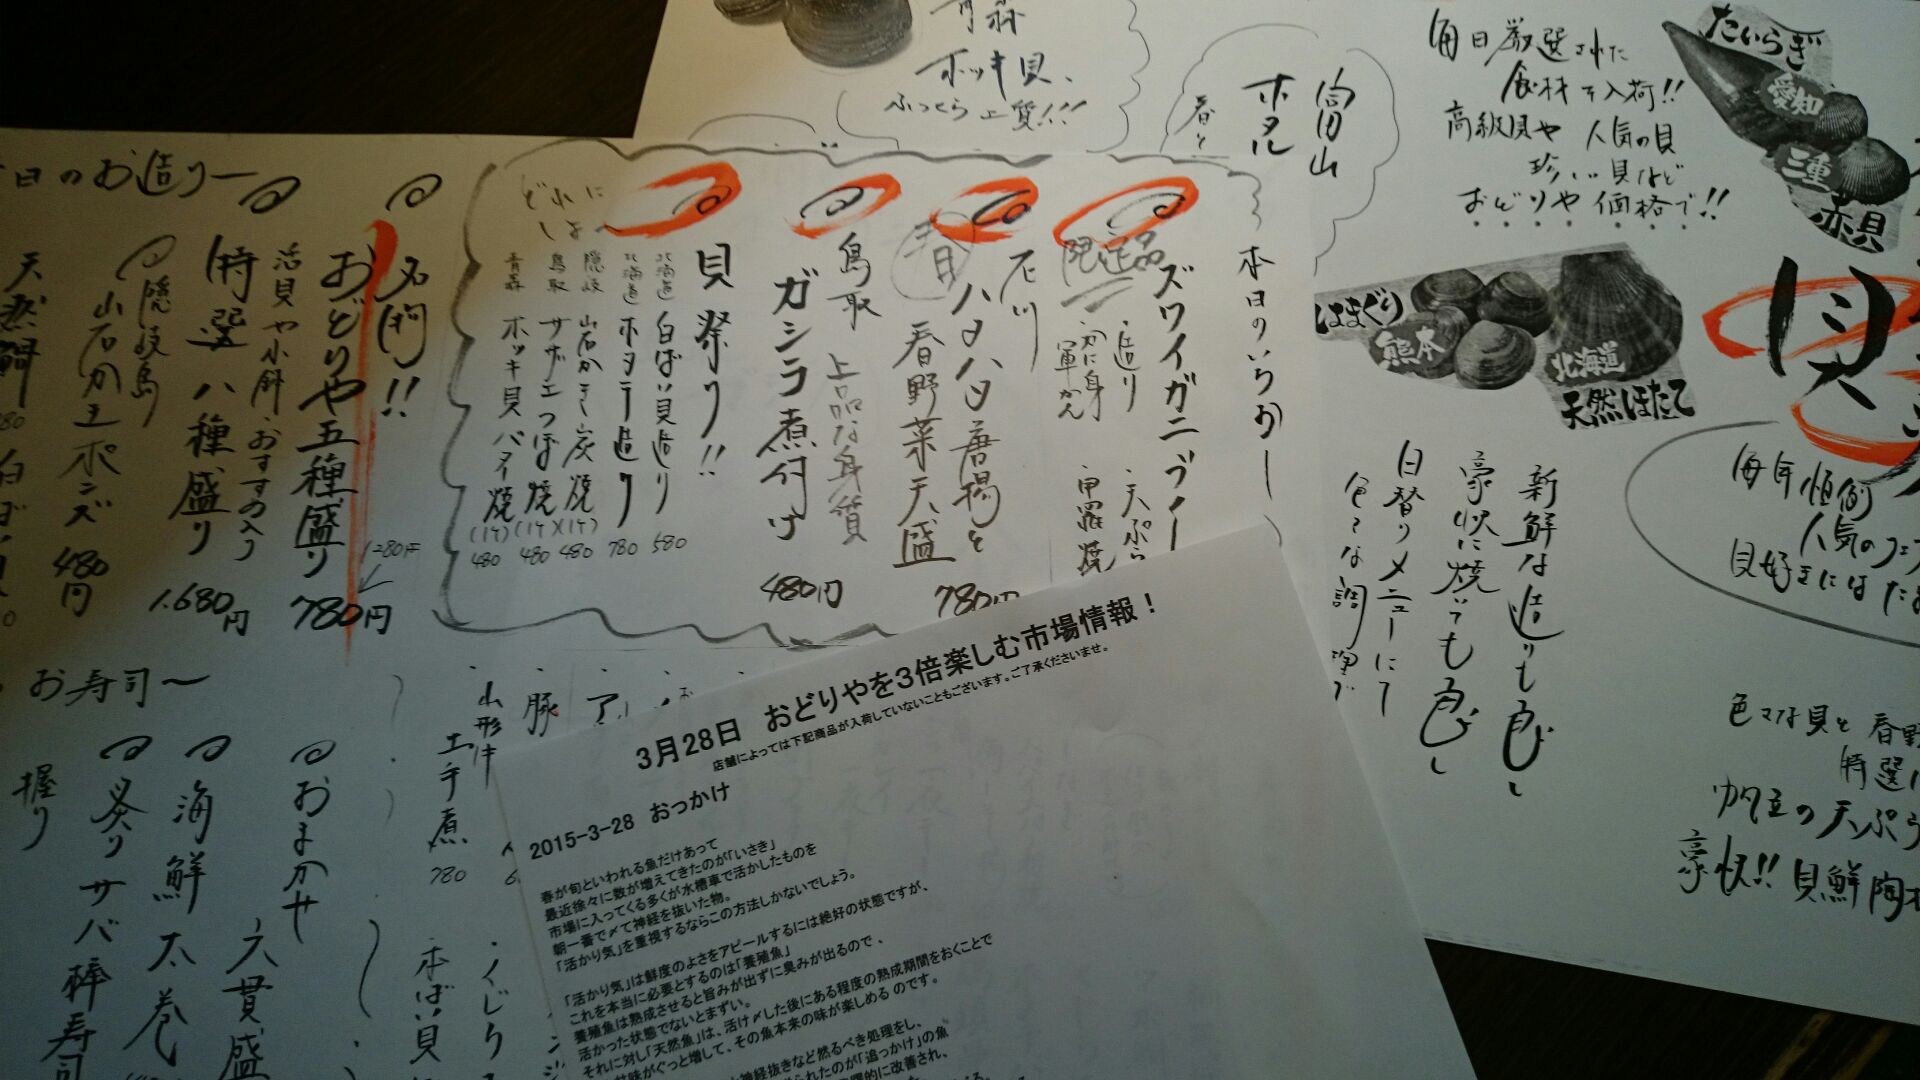 青森
ホッキ貝、
ふっくら上質!!!
富山
ホタル
春と
毎日厳選された
食材を入荷!!
高級貝や人気の貝
珍しい貝など
おどりや価格で!!
たいらぎ
愛知
三重
赤貝
はまぐり
熊本
北海道
天然ほたて
貝
毎年恒例
人気のフェ
貝好きにはた
新鮮な造りも
豪快に焼いても
日替りメニューにて
色々な調理で
色々な貝と春野
特選
帆立の天ぷら
豪快!!貝鮮陶
本日のいちおし
限定品
ズワイガニ
・造り
・かに身軍かん
・天ぷら
・甲羅焼
石川
ハタハタ唐揚と
春野菜天盛
780円
鳥取
上品な身質
ガシラ煮付け
480円
どれにしよ〜
貝祭り!!
北海道 白ばい貝造り 580
北海道 ホタテ造り 780
隠岐 岩かき炭焼 (1ケ) 480
鳥取 サザエつぼ焼 (1ケ) 480
青森 ホッキ貝バター焼 (1ケ) 480
日のお造り〜
名門!!
おどりや五種盛り
1280円
780円
活貝や小鉢おすすめ入り
特選八種盛り
1.680円
隠岐島
岩かきポンズ
480円
天然鯛
お寿司〜
おまかせ
六貫盛
海鮮太巻
炙りサバ棒寿司
握り
山形牛
土手煮
780
豚
本ばい貝
3月28日 おどりやを3倍楽しむ市場情報！
店舗によっては下記商品が入荷していないこともございます。ご了承くださいませ。
2015-3-28 おっかけ
春が旬といわれる魚だけあって
最近徐々に数が増えてきたのが「いさき」
市場に入ってくる多くが水槽車で活かしたものを
朝一番で〆て神経を抜いた物。
「活かり気」を重視するならこの方法しかないでしょう。
「活かり気」は鮮度のよさをアピールするには絶好の状態ですが、
これを本当に必要とするのは「養殖魚」
養殖魚は熟成させると旨みが出ずに臭みが出るので、
活かった状態でないとまずい。
それに対し「天然魚」は、活け〆した後にある程度の熟成期間をおくことで
甘味がぐっと増して、その魚本来の味が楽しめるのです。
神経抜きなど然るべき処理をし、
られたのが「追っかけ」の魚
的に改善され、